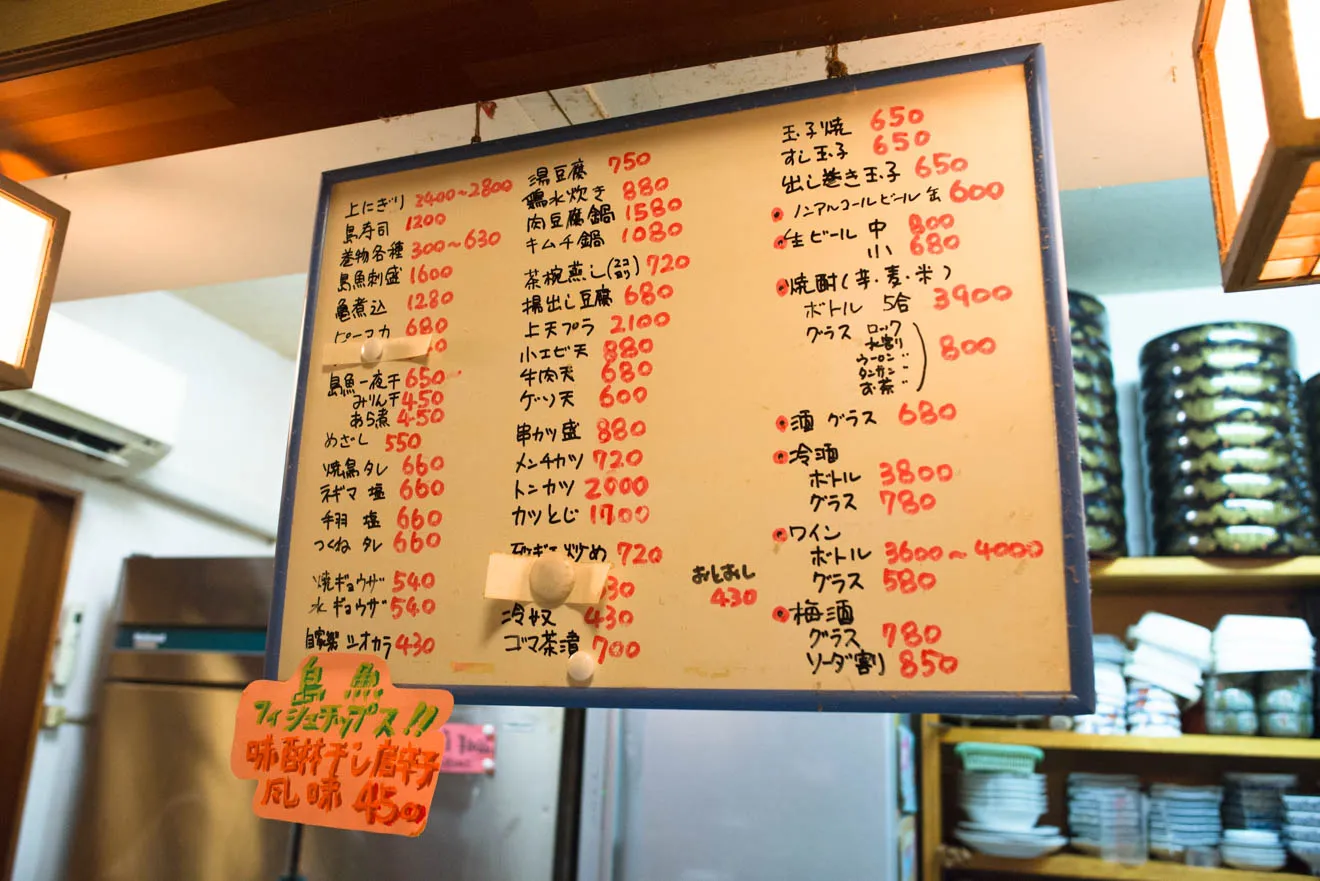 上にぎり 2400~2800
島寿司 1200
巻物各種 300~630
島魚刺盛 1600
亀煮込 1280
ピーマカ 680
島魚一夜干 650
みりん干 450
あら煮 450
めざし 550
焼鳥 タレ 660
ネギマ 塩 660
手羽 塩 660
つくね タレ 660
焼ギョウザ 540
水ギョウザ 540
自家製 シオカラ 430
湯豆腐 750
鶏水炊き 880
肉豆腐鍋 1580
キムチ鍋 1080
茶椀蒸し 720
揚出し豆腐 680
上天プラ 2100
小エビ天 880
牛肉天 680
ゲソ天 600
串カツ盛 880
メンチカツ 720
トンカツ 2000
カツとじ 1700
炒め 720
30
冷奴 430
ゴマ茶漬 700
おしんこ 430
玉子焼 650
すし玉子 650
出し巻き玉子 650
ノンアルコールビール 缶 600
生ビール 中 800
小 680
焼酎(芋・麦・米)
ボトル 5合 3900
グラス ロック
水割り
ウーロン 〃
タンサン 〃
お茶 〃
800
酒 グラス 680
冷酒
ボトル 3800
グラス 780
ワイン
ボトル 3600~4000
グラス 580
梅酒
グラス 780
ソーダ割り 850
島魚
フィシュチップス!!
味醂干し唐辛子
風味 450